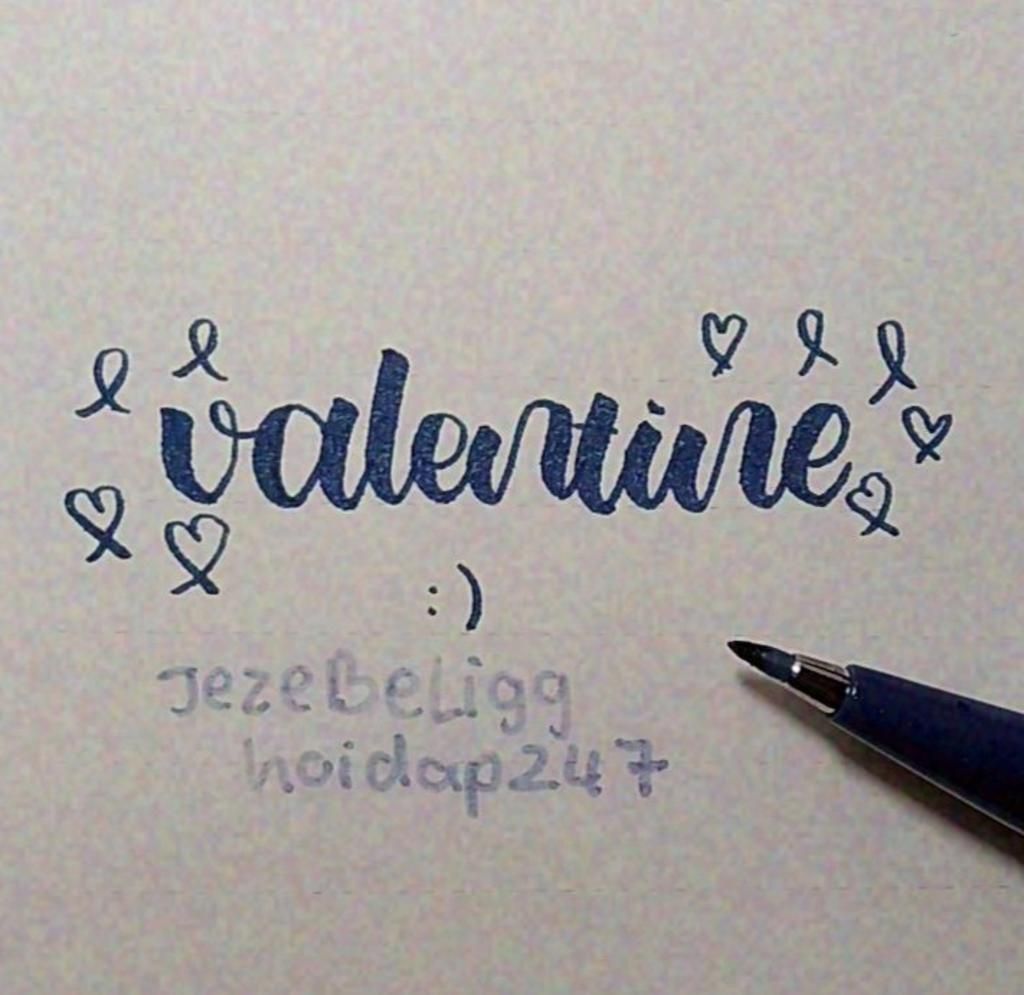 valentine
:)
JezeBeLigg
hoidap247